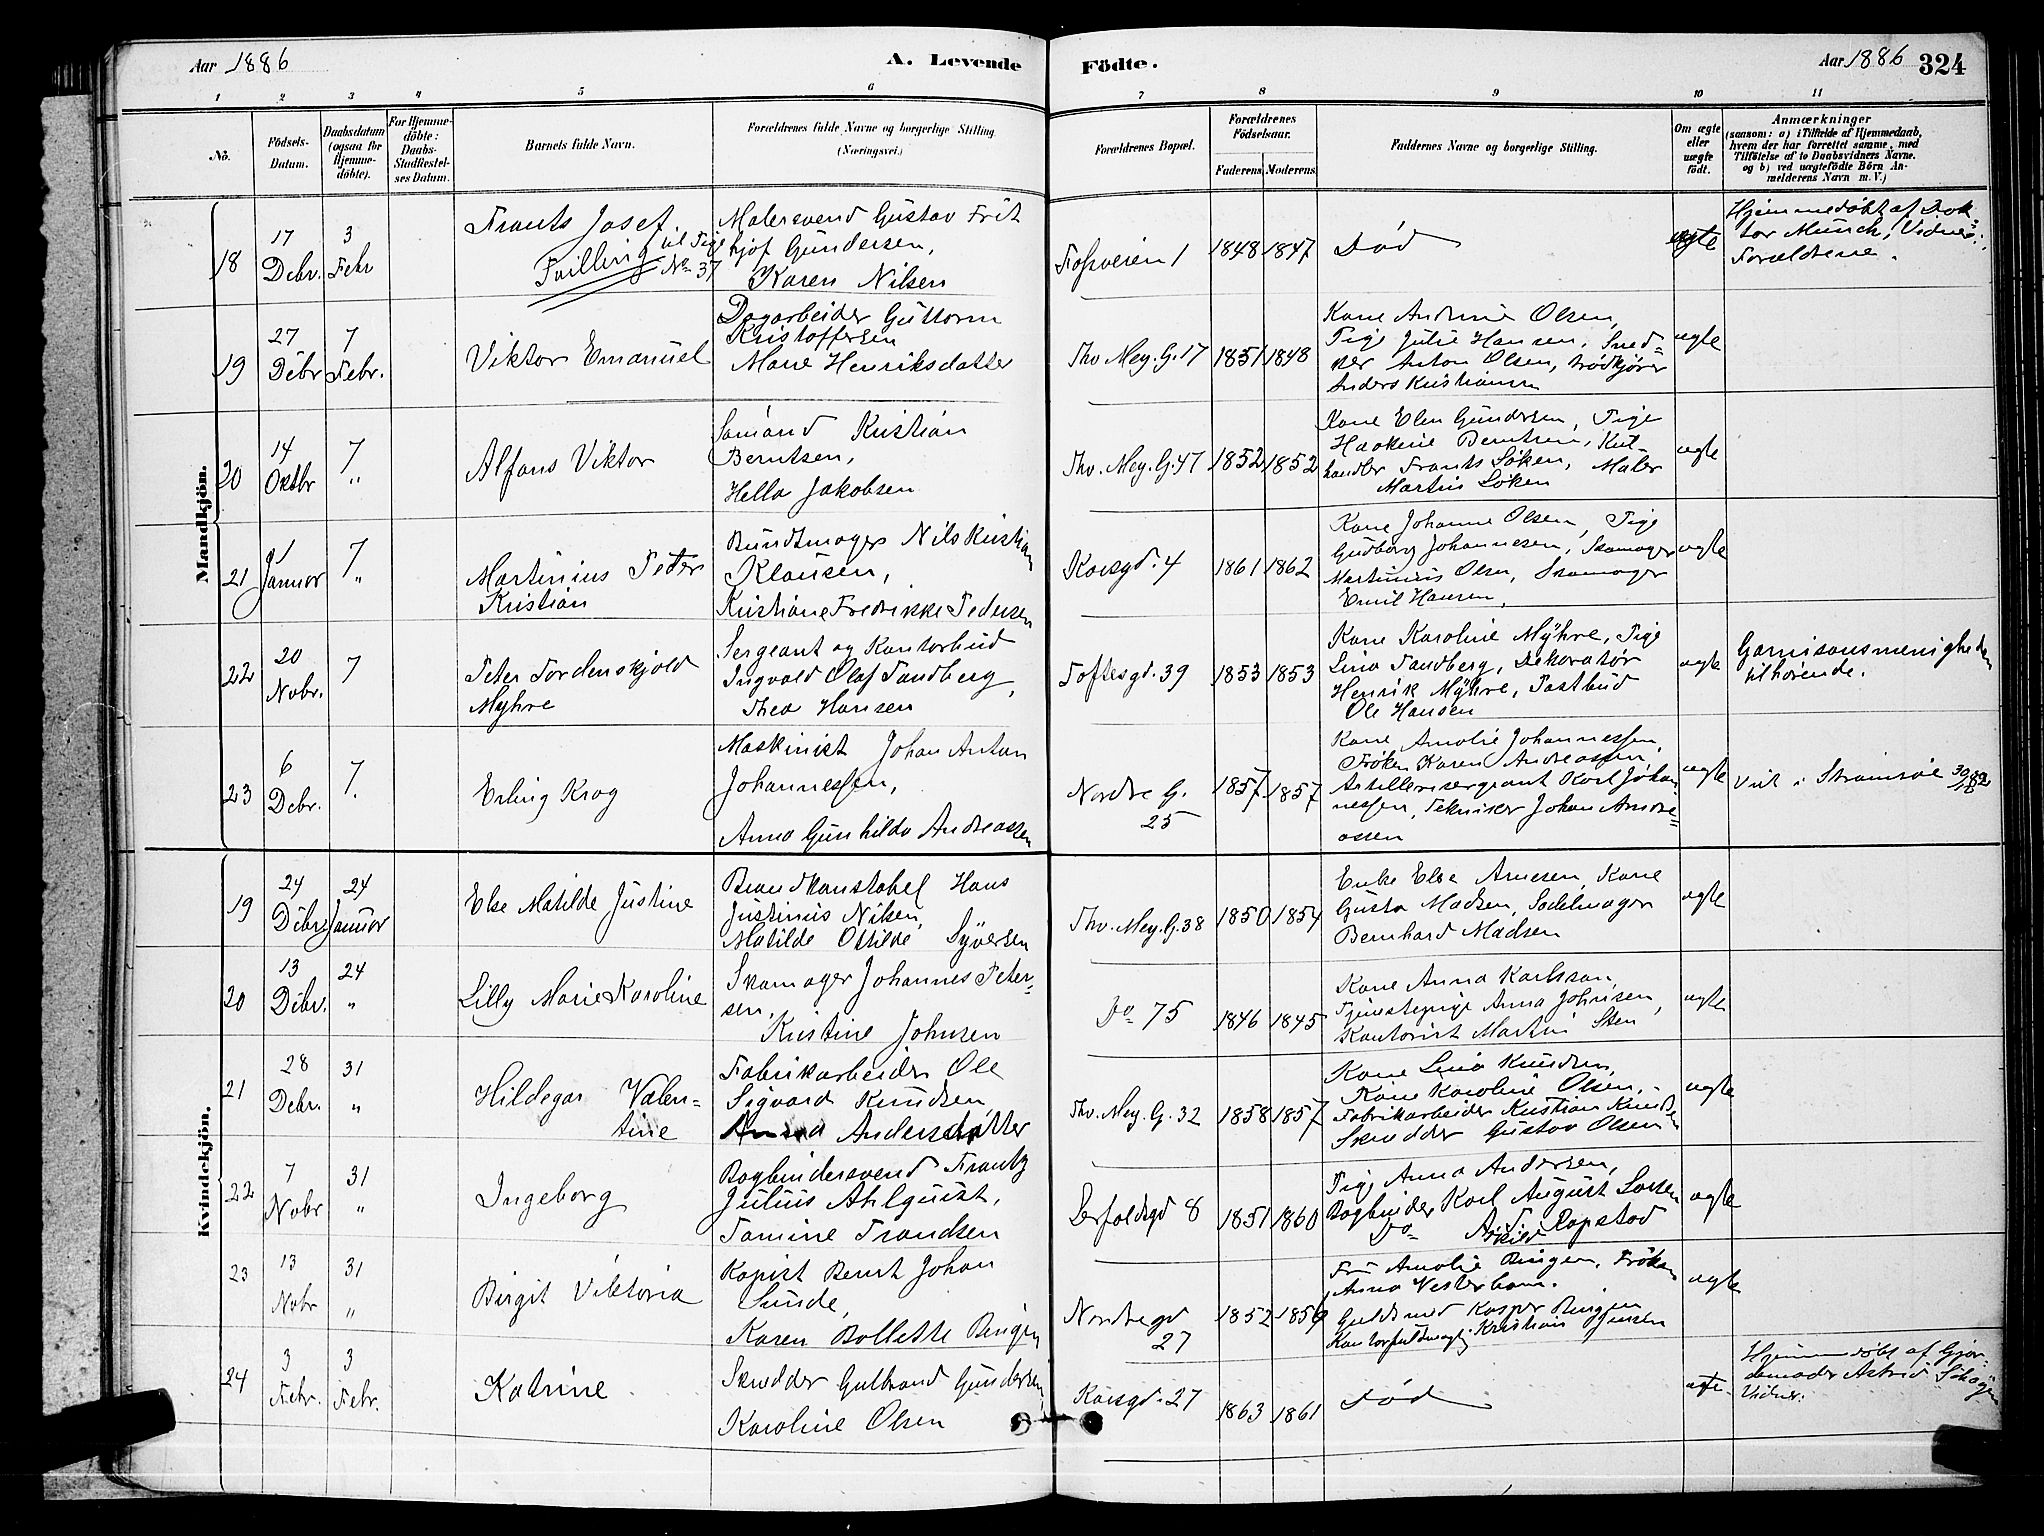 Aar 1886
A. Levende
Födte.
Aar 1886
324
1 2 3 4 5 6 7 8 9 10 11
Nö.
Födsels-
Datum.
Daabsdatum
(ogsaa for
Hjemme-
döbte).
For Hjemme-
döbte:
Daabs-
Stadfæstel-
ses Datum.
Barnets fulde Navn.
Forældrenes fulde Navne og borgerlige Stilling.
(Næringsvei.)
Forældrenes Bopæl.
Forældrenes
Födselsaar.
Faderens
Moderens
Faddernes Navne og borgerlige Stilling.
Om ægte
eller
uægte
födt.
Anmærkninger
(saasom: a) i Tilfælde af Hjemmedaab,
hvem der har forrettet samme, med
Tilföielse af to Daabsvidners Navne.
og b) ved uægtefödte Börn An-
melderens Navn m. V.)
Mandkjön.
18
17
Debr.
3
Febr
Frants Josef
Tvilling til Pige
No 37
Malersvend Gustav Frit
hjof Gundersen,
Karen Nilsen
Fossveien 1
1848 1847
Död
ægte
Hjemmedöbt af Dok-
tor Münch, Vidner:
Forældrene.
19
27
Debr
7
Febr.
Viktor Emanuel
Dagarbeider Guttorm
Kristoffersen
Marie Henriksdatter
Thv. Mey. G. 17
1851 1848
Kone Andrine Olsen,
Pige Julie Hansen, Sned-
ker Anton Olsen,
Anders Kristiansen
ægte
20
14
Oktbr
7
"
Alfons Viktor
Kristian
Berntsen,
Hella Jakobsen
Thv. Mey. G. 47
1852 1852
Kone Elen Gundersen, Pige
Haakine Berntsen, Kul-
handler Frants Löken, Maler
Martin Löken
ægte
21
1
Januar
7
"
Martinius Peder
Kristian
Bundtmager Nils Kristian
Klausen,
Kristiane Fredrikke Pedersen
Korsgd. 4
1861 1862
Kone Johanne Olsen, Pige
Gudborg Johannesen, Skomager
Martinius Olsen, Skomager
Emil Hansen,
ægte
22
20
Nobr.
7
Peter Tordenskjold
Myhre
Sergeant og Kontorbud
Ingvald Olaf Sandberg,
Thea Hansen
Toftesgd. 39
1853 1853
Kone Karoline Myhre, Pige
Lina Sandberg, Dekoratör
Henrik Myhre, Postbud
Ole Hansen
ægte
Garnisonsmenigheden
tilhörende.
23
6
Debr.
7.
Erling Krog
Maskinist Johan Anton
Johannessen,
Anna Gunhilda Andreassen
Nordre G.
25
1857 1857
Kone Amalie Johannessen,
Fröken Karen Andreassen,
Artillerisergeant Karl Johan
nessen, Tekniker Johan Andre-
assen
ægte
Viet i Strömsöe
Kvindekjön.
19
24
Debr
24
Januar
Else Matilde Justine
Brandkonstabel Hans
Justinius Nilsen,
Matilde Ottilde Syversen
Thv. Mey. G. 38
1850 1854
Enke Else Arnesen, Kone
Gusta Madsen, Sadelmager
Bernhard Madsen
ægte
20
13
Debr.
24
"
Lilly Marie Karoline
Skomager Johannes Peter-
sen,
Kristine Johnsen
Do 75
1846 1845
Kone Anna Karlsson,
Tjenestepige Anna Johnsen,
Kontorist Martin Sten
ægte
21
28
Debr.
31
"
Hildegar Valen-
tine
Fabrikarbeider Ole
Sigvard Knudsen
Anna Andersdatter
Thv. Mey. G. 32
1858 1857
Kone Lina Knudsen,
Kone Karoline Olsen,
Fabrikarbeider Kristian Knudsen
Skrædder Gustav Olsen
ægte
22
7
Nobr
31
"
Ingeborg
Bogbindersvend Frantz
Julius Ahlquist,
Tomine Frandsen
Derfoldsgd 8
1851 1860
Pige Anna Andersen,
Bogbinder Karl August Larsen
Do Ropstad
ægte
23
13
Nobr
31
"
Birgit Viktoria
Kopist Bernt Johan
Sunde,
Karen Bollette Ringen
Nordregd
27
1852 1856
Fru Amalie Ringen, Fröken
Anna Vesterhom.
Guldsmed Kasper Ringen
Kontorfuldmægtig Kristian Jensen
ægte
24
3
Febr.
3
Febr.
Katrine
Skrædder Gulbrand Gundersen
Karoline Olsen
Korsgd. 27
1863 1861
Död
ægte
Hjemmedöbt af Gjor-
demoder Astrid
Vidner: